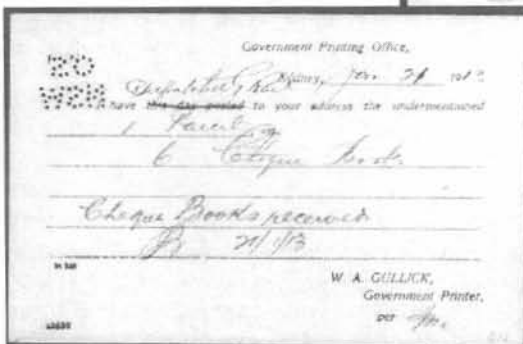 Government Printing Office,
Sydney, Jan 21 191
I have this day posted to your address the undermentioned
1 Parcel
6 Cheque Books
Cheque Books received
21/1/13
W. A. GULLICK,
Government Printer,
per